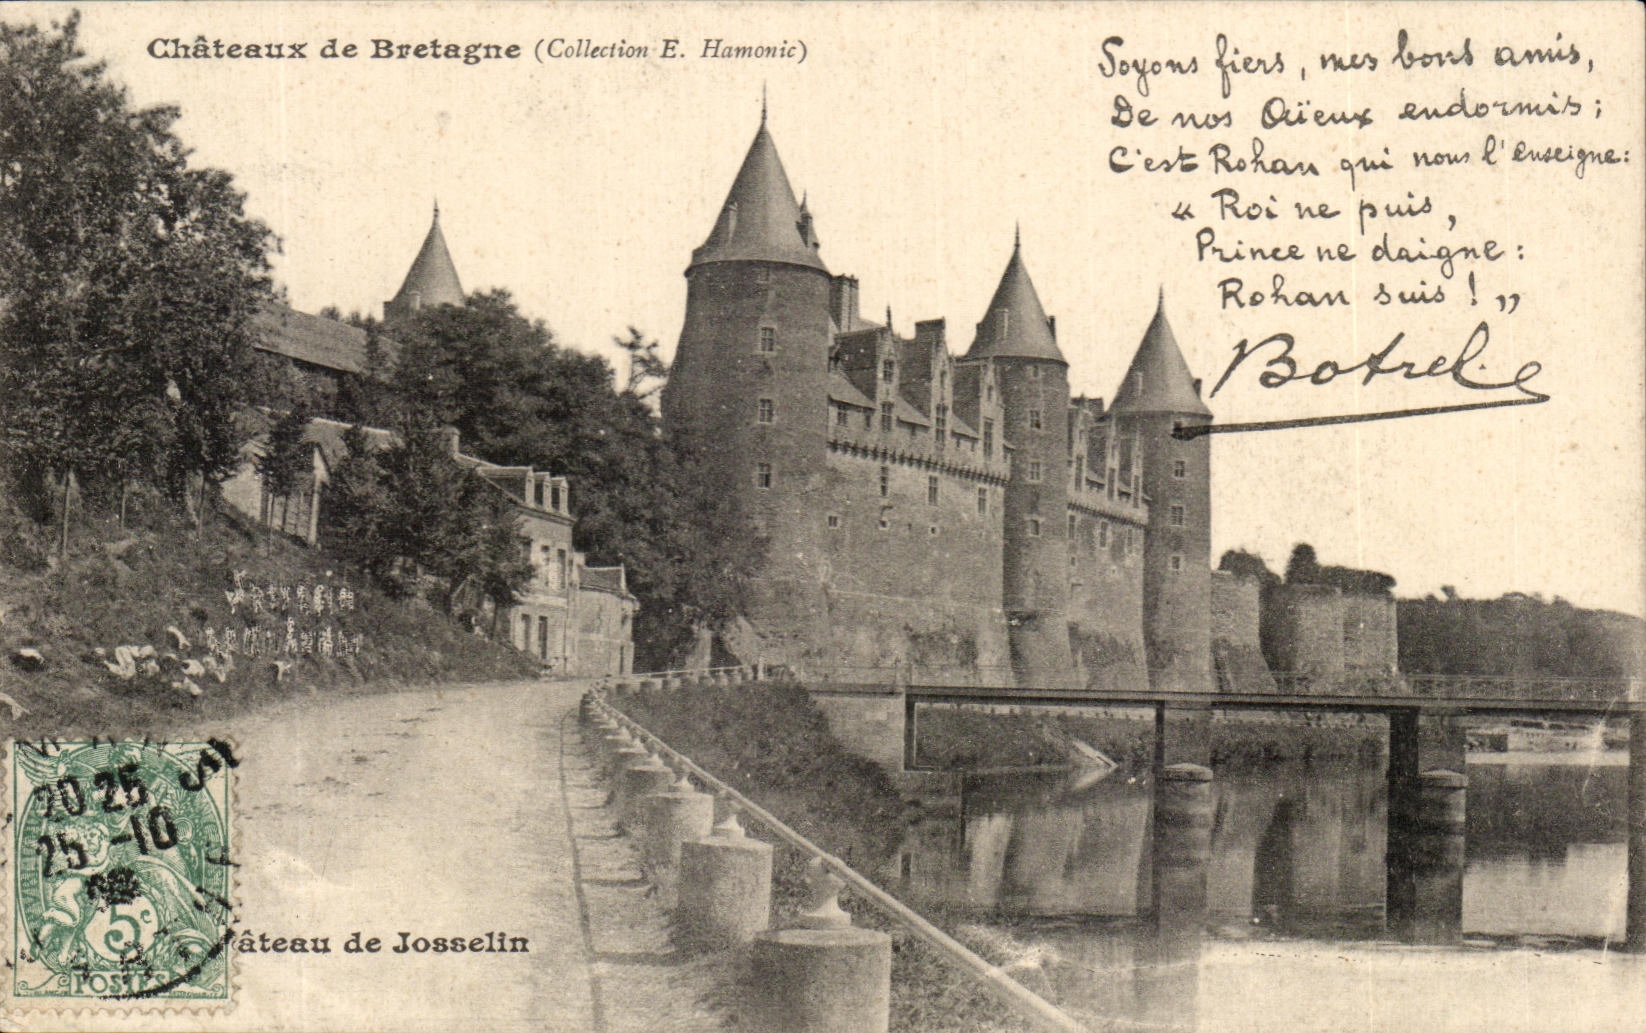 Châteaux de Bretagne (Collection E. Hamonic)
Soyons fiers, mes bons amis,
De nos Aïeux endormis;
C'est Rohan qui nous l'enseigne:
« Roi ne puis,
Prince ne daigne:
Rohan suis! »
Botrel
20 25
25 -10
5c
POSTES
âteau de Josselin